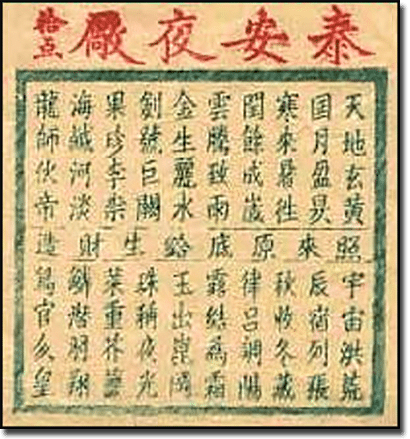 泰安夜廠
拾点
天地玄黃
日月盈昃
寒來暑往
閏餘成歲
雲騰致雨
金生麗水
劍號巨闕
果珍李柰
海鹹河淡
龍師伙帝
照來原底生財造
宇宙洪荒
辰宿列張
秋收冬藏
律呂調陽
露結為霜
玉出崑岡
珠稱夜光
菜重芥薑
鱗潛羽翔
鳥官人皇